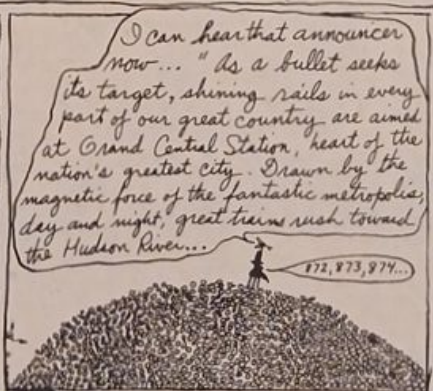 I can hear that announcer
now... "As a bullet seeks
its target, shining rails in every
part of our great country are aimed
at Grand Central Station, heart of the
nation's greatest city. Drawn by the
magnetic force of the fantastic metropolis,
day and night, great trains rush toward
the Hudson River...
872,873,874...